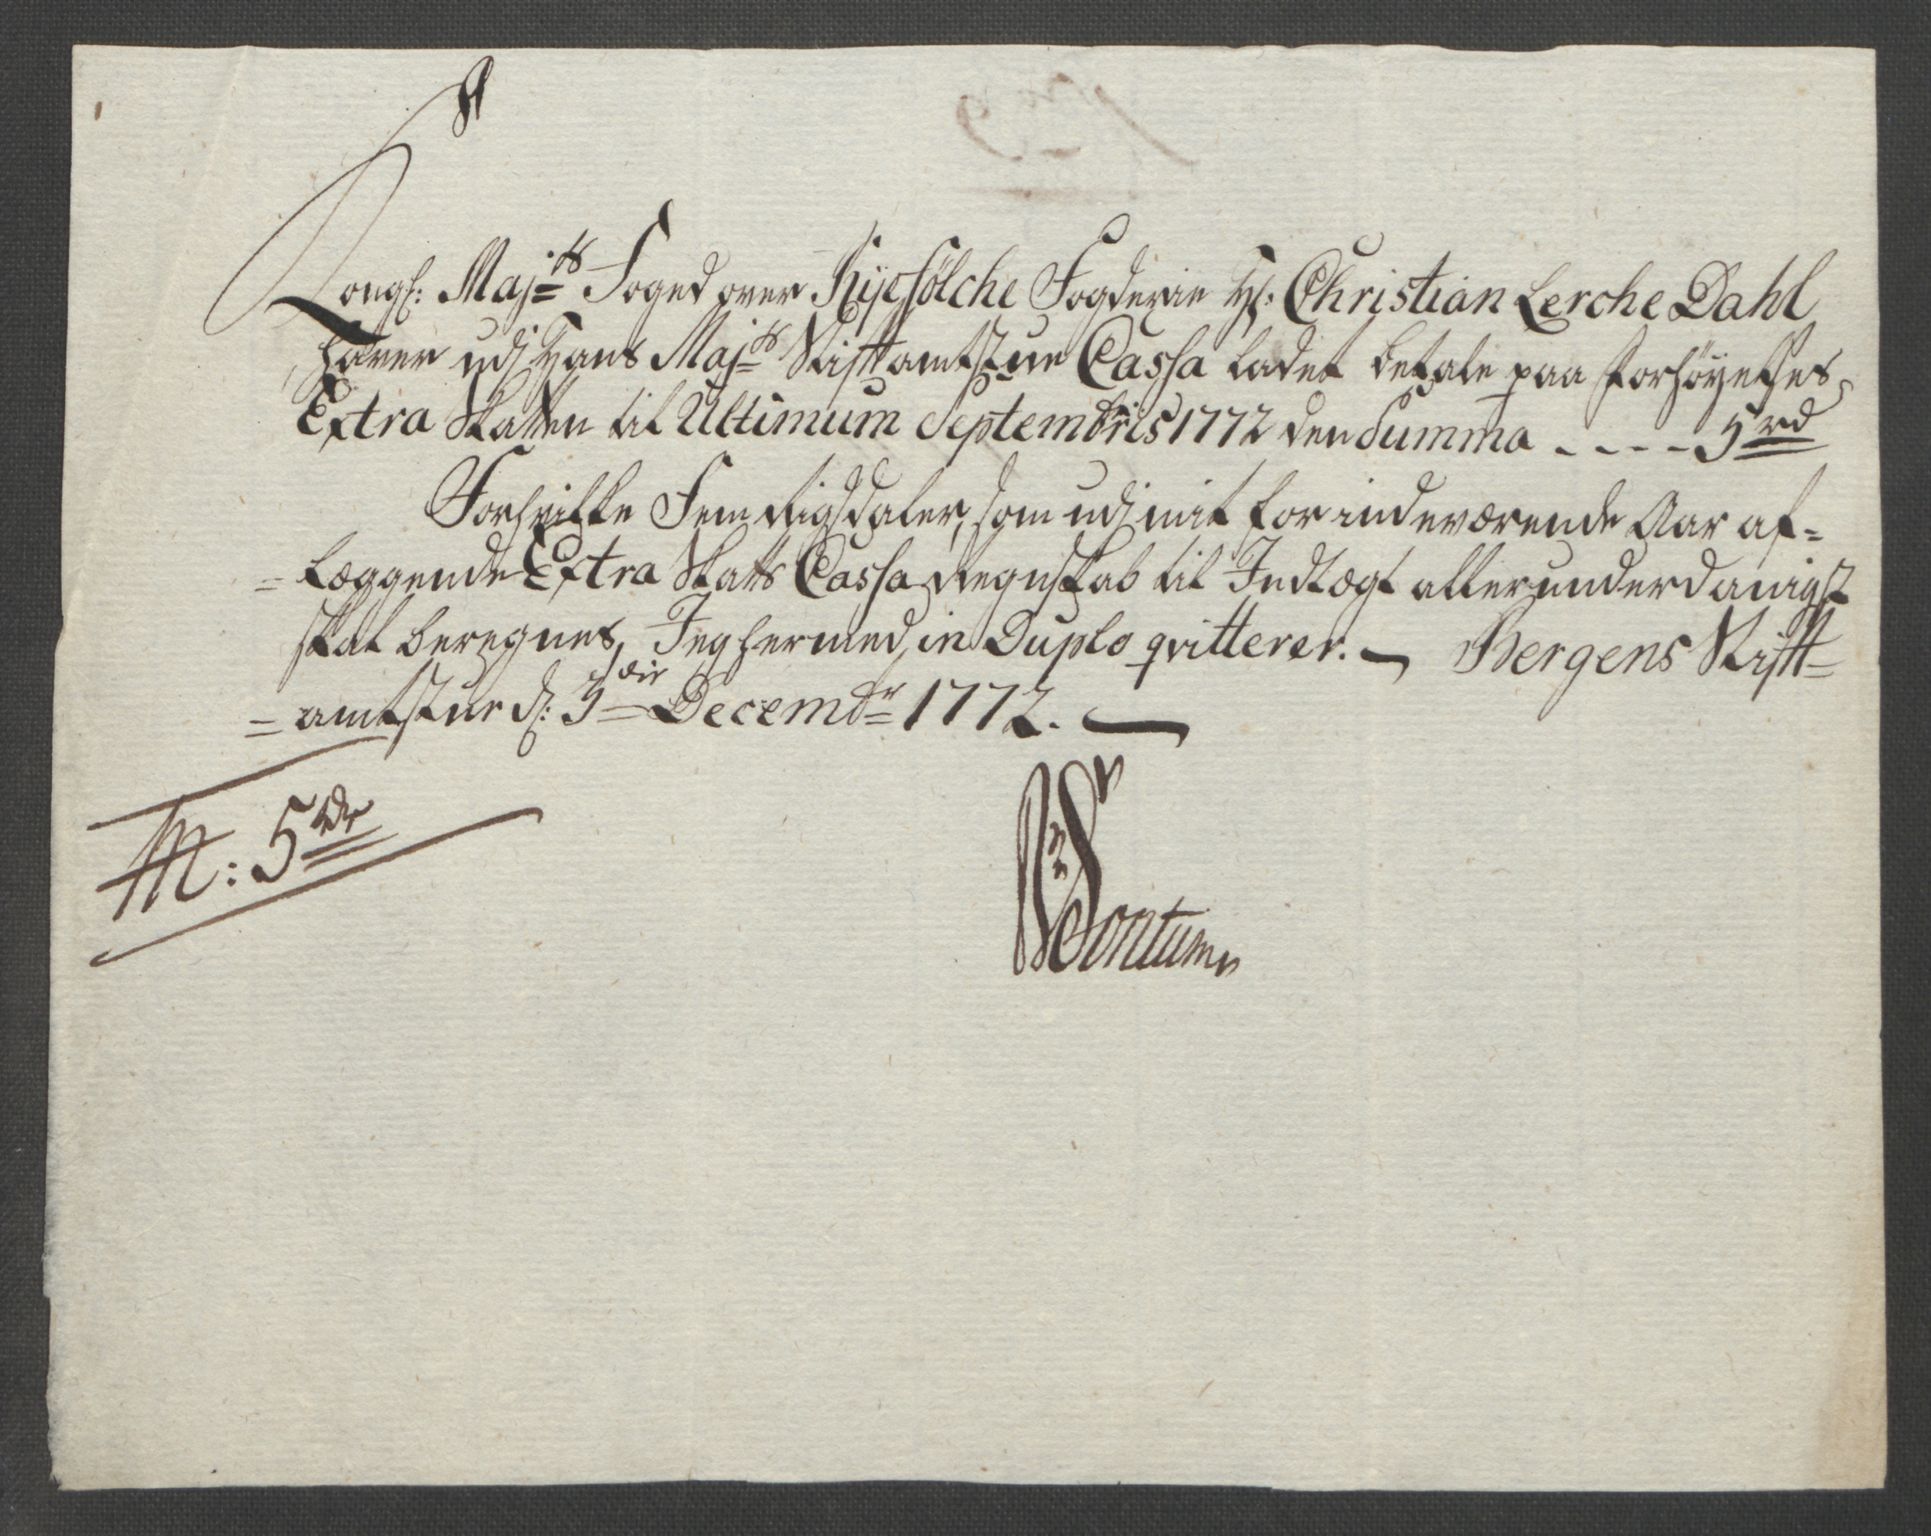 Kongl: Majts Foged over Ryefölche Fogderie Hr: Christian Lerche Dahl
haver udj Hans Majts Stiftamtstue Cassa ladet betale paa Forhöyelses
Extra Skatten til Ultimum Septembris 1772 den Summa - - - - 5 rd
Forskrifne Fem Rigsdaler, som udj mit for indeværende Aar af-
-læggende Extra Skatts Cassa Regnskab til Indtægt allerunderdanigst
skal beregnes, Jeg hermed in Duplo qvitterer. — Bergens Stift-
-amtstue d: 3die Decembr 1772. —
5 rdr
Sontum